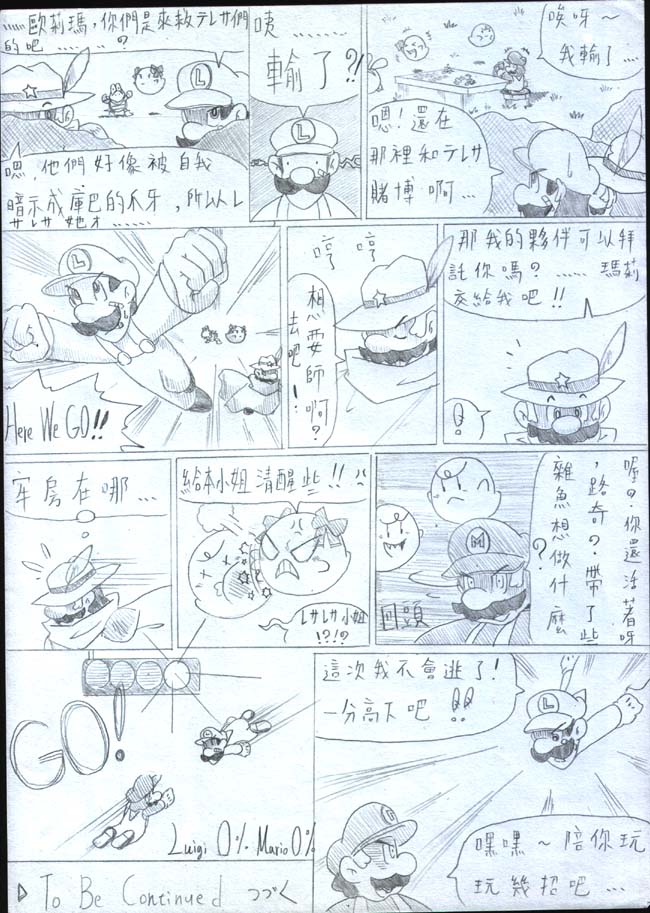 唉呀～
我輸了…
嗯！還在
那裡和テレサ
賭博啊…
咦………
輸了？！
……歐莉瑪，你們是來救テレサ們
的吧………？
嘿，他們好像被自我
暗示成庫巴的爪牙，所以レ
サレサ她才……
L
L
L
那我的夥伴可以拜
託你嗎？……瑪莉
交給我吧！！
哼哼
想耍帥啊？
去吧！
L
Here We GO!!
喔？你還活著呀
，路奇？帶了些
雜魚想做什麼
？
M
回頭
給本小姐清醒些！！
レサレサ小姐
!?!?
牢房在哪…
這次我不會逃了！
一分高下吧！！
L
嘿嘿～陪你玩
玩幾招吧…
GO!
Luigi 0% Mario 0%
To Be Continued つづく